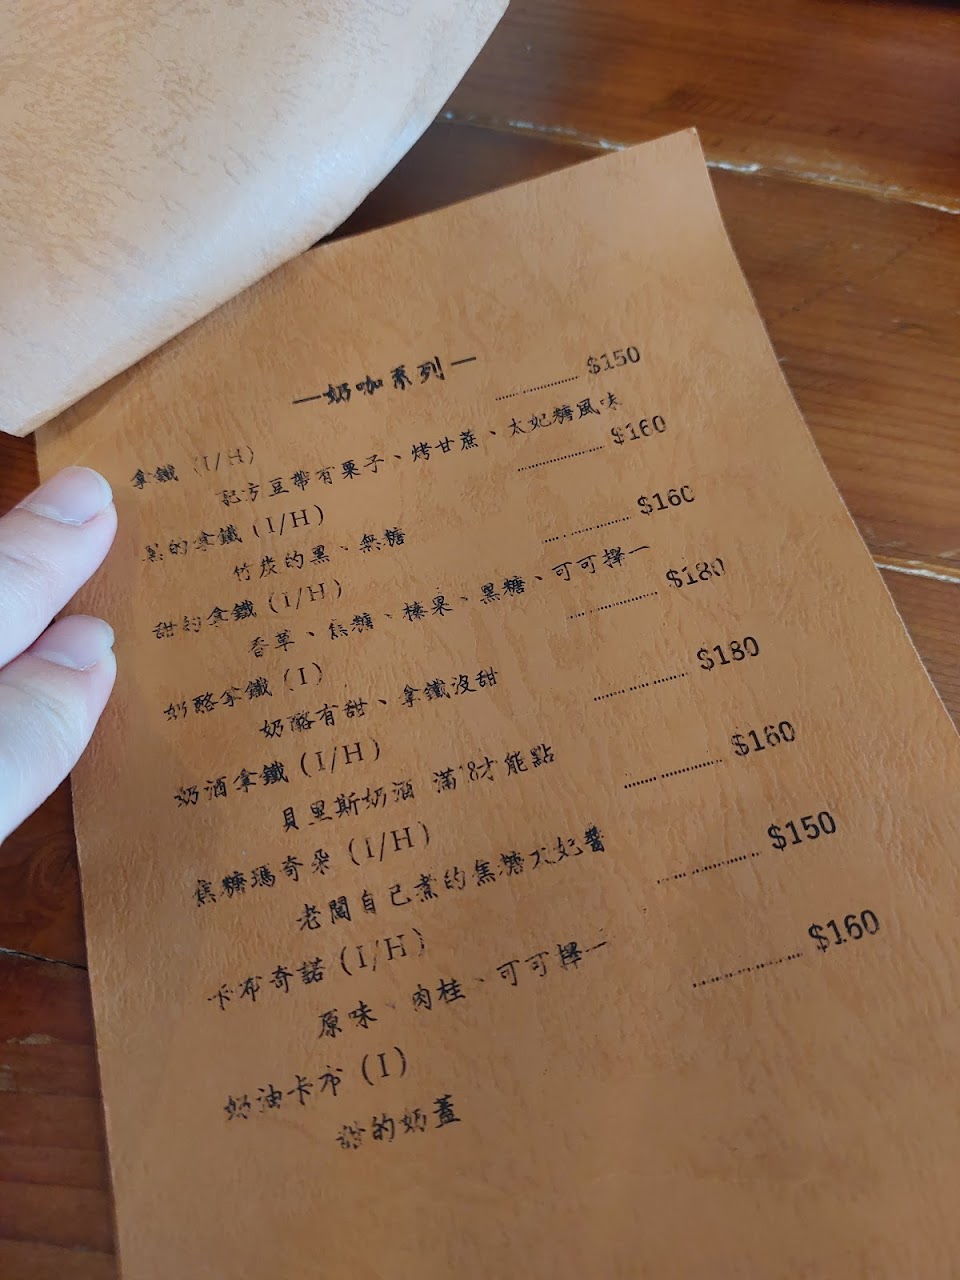 —奶咖系列—
拿鐵 (I/H) ............ $150
配方豆帶有栗子、烤甘蔗、太妃糖風味
黑的拿鐵 (I/H) ............ $160
竹炭的黑、無糖
甜的拿鐵 (I/H) ............ $160
香草、焦糖、榛果、黑糖、可可擇一
奶酪拿鐵 (I) ............ $180
奶酪有甜、拿鐵沒甜
奶酒拿鐵 (I/H) ............ $180
貝里斯奶酒 滿18才能點
焦糖瑪奇朵 (I/H) ............ $160
老闆自己煮的焦糖太妃醬
卡布奇諾 (I/H) ............ $150
原味、肉桂、可可擇一
奶油卡布 (I) ............ $160
甜的奶蓋